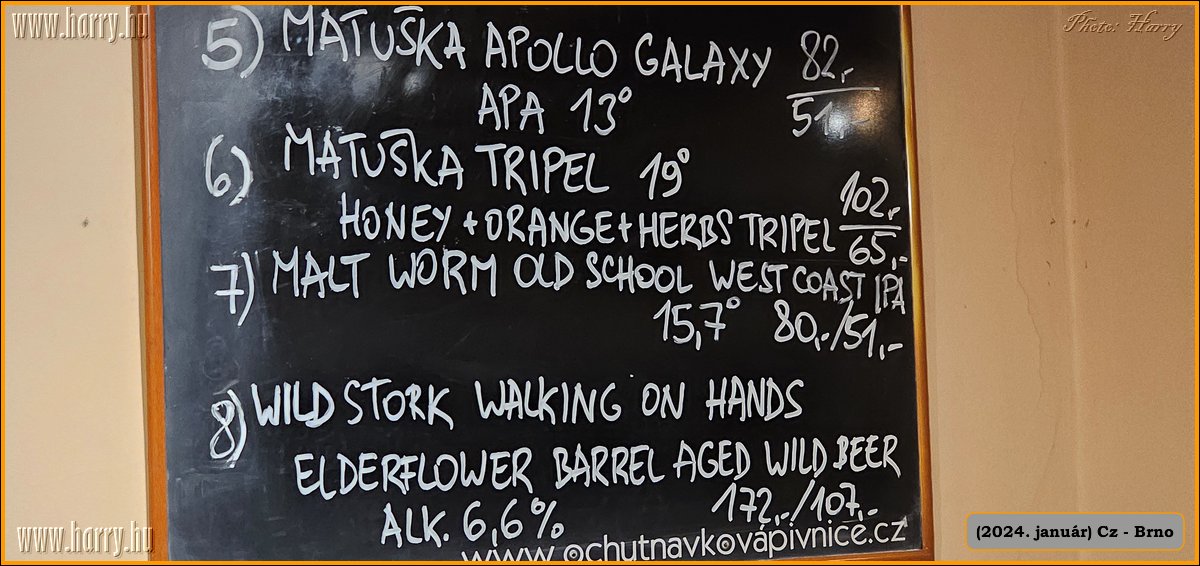 www.harry.hu
Photo: Harry
5) MATUŠKA APOLLO GALAXY 82,-
APA 13° 51,-
6) MATUŠKA TRIPEL 19°
HONEY + ORANGE + HERBS TRIPEL 102,-
65,-
7) MALT WORM OLD SCHOOL WEST COAST IPA
15,7° 80,-/51,-
8) WILD STORK WALKING ON HANDS
ELDERFLOWER BARREL AGED WILD BEER
ALK. 6,6% 172,-/107,-
www.ochutnavkovapivnice.cz
www.harry.hu
(2024. január) Cz - Brno